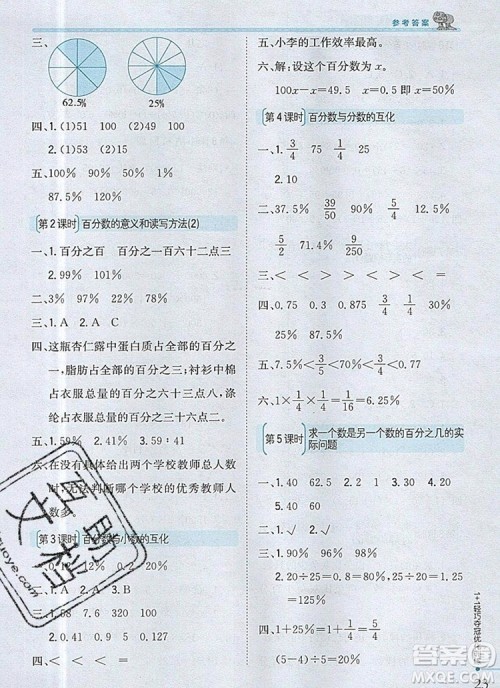 参考答案
三、
62.5% 25%
四、1.(1)51 100 (2)45
2.(1)144 100 (2)44
五、100% 50% 75%
87.5% 120%
第2课时 百分数的意义和读写方法(2)
一、1.百分之百 百分之一百六十二点三
2.99% 101%
二、3% 96% 22% 220%
三、1.A 2.A
四、这瓶杏仁露中蛋白质占全部的百分之
一,脂肪占全部的百分之二;衬衫中棉
占衣服总量的百分之六十三点三,涤
纶占衣服总量的百分之三十六点七。
五、1.59% 2.41%
六、因为没有具体给出两个学校教师总人数
时,无法判断哪个学校的优秀教师人数
多。
第3课时 百分数与小数的互化
120%
二、1.A 2.A 3.A
三、1.08 7.8 320
2.0.01 0.97 64 100
四、< = > <
五、小李的工作效率最高。
六、解:设这个百分数为x。
100x-x=49.5 x=0.5 即x=50%
第4课时 百分数与分数的互化
一、1. 3/4 75 1/4 25
2.10 10
二、87.5% 39/50 37.5% 9/25
5/2 11/50 316.7% 3/4
三、< < < < > =
四、0.15 0.3 0.75 0.875
五、7.5%<3/5<0.7<71%<3/4
六、1×1/5×1/5=4%
第5课时 求一个数是另一个数的百分之几的实
际问题
一、1.40 2.60
二、1.× 2.× 3.√
三、1.25 32 50
2.20÷25=80%
25÷20=125%
四、1+25%=5/4 1÷5/4=4/5
(5-4)÷5=20%
23